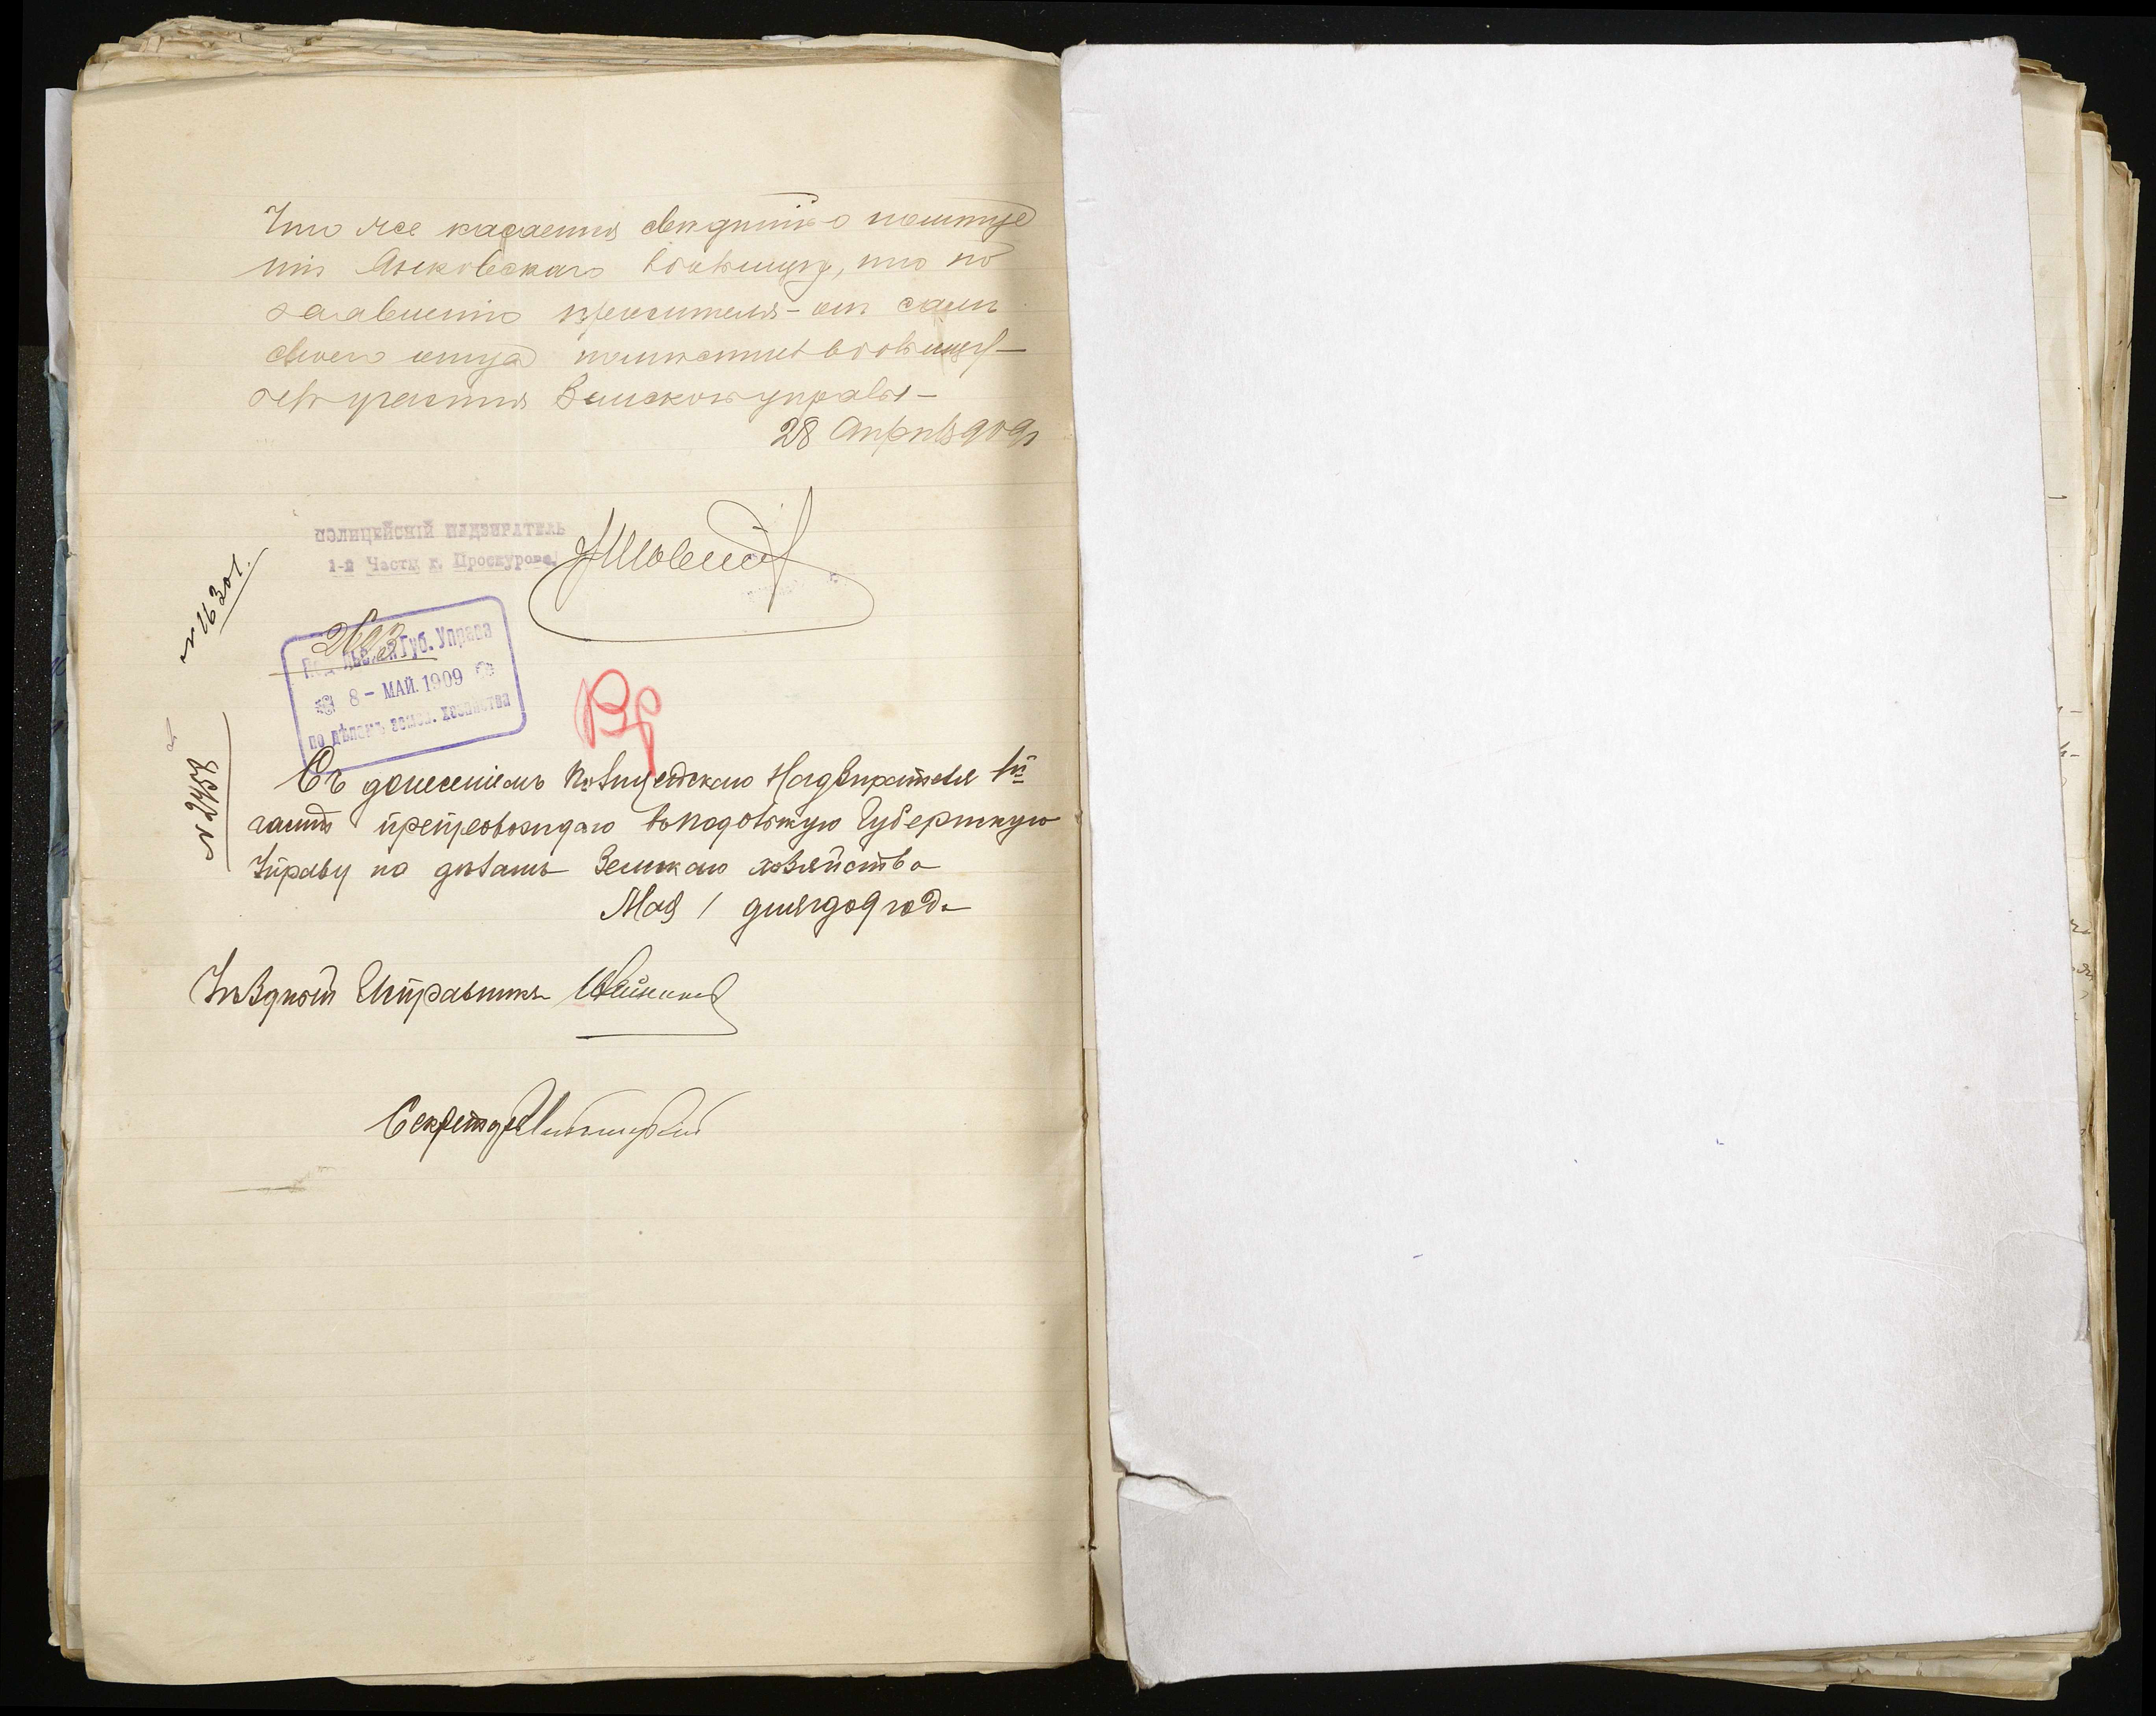 Что же касается свидѣт. о помѣще
нія Янковскаго въ больницу, то по
заявленію просителя - он самъ
своего отца помѣстилъ въ больницу -
безъ участія Земской управы -
28 Апрѣля 909 г
ПОЛИЦЕЙСКІЙ НАДЗИРАТЕЛЬ
1-й Части г. Проскурова.
№ 16301.
Подольская Губ. Управа
8 - МАЙ. 1909
по дѣламъ земск. хозяйства
№ 2458
Съ донесеніемъ Полицейскаго Надзирателя 1й
части препровождаю въ Подольскую Губернскую
Управу по дѣламъ Земскаго хозяйства
Мая 1 дня 1909 года
Уѣздный Исправникъ
Секретарь